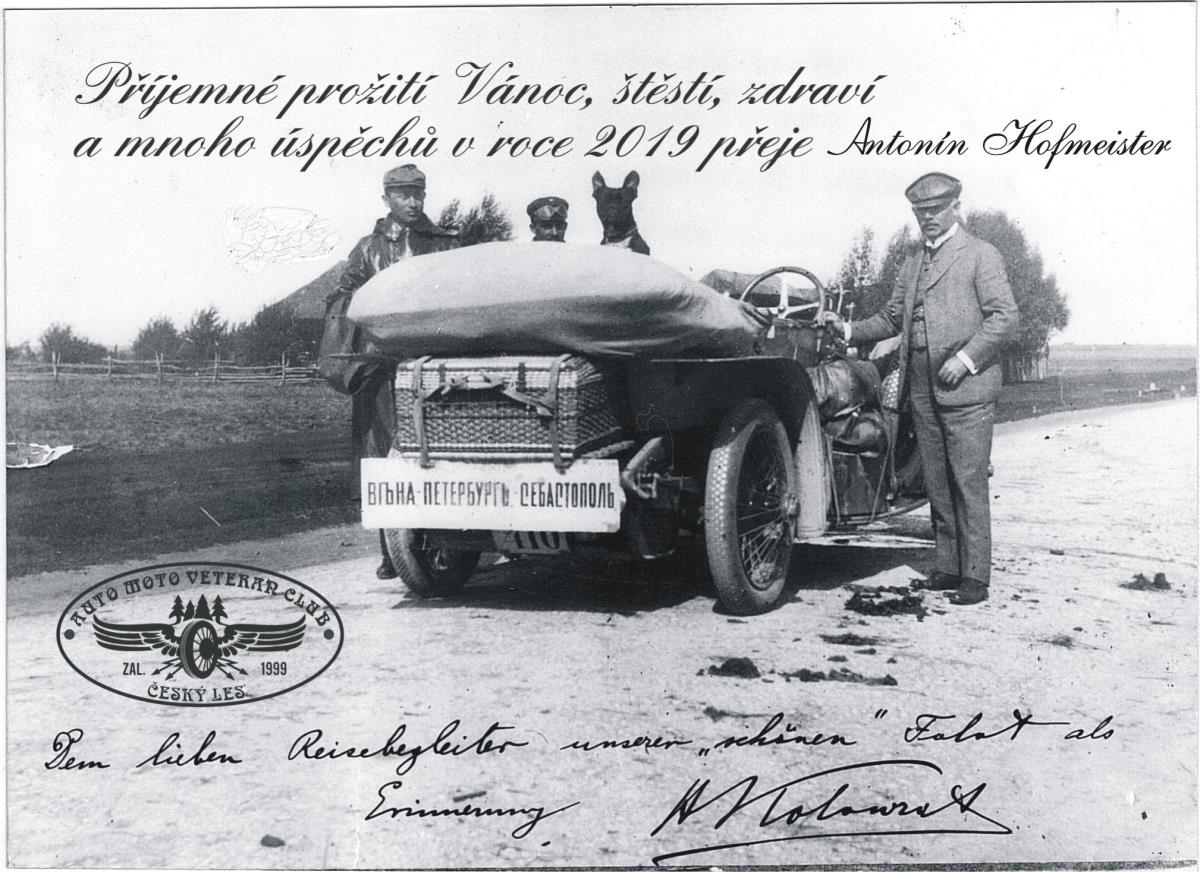 Příjemné prožití Vánoc, štěstí, zdraví
a mnoho úspěchů v roce 2019 přeje Antonín Hofmeister
ВѢНА-ПЕТЕРБУРГЪ-СЕБАСТОПОЛЬ
110
AUTO MOTO VETERAN CLUB
ZAL. 1999
ČESKÝ LES
Dem lieben Reisebegleiter unserer „schönen“ Fahrt als
Erinnerung A Kolowrat